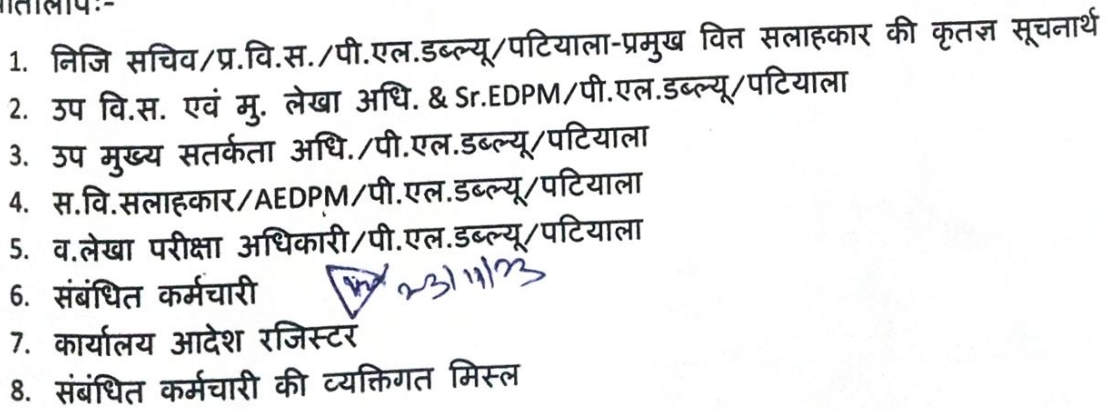 1. निजि सचिव/प्र.वि.स./पी.एल.डब्ल्यू/पटियाला-प्रमुख वित सलाहकार की कृतज्ञ सूचनार्थ
2. उप वि.स. एवं मु. लेखा अधि. & Sr.EDPM/पी.एल.डब्ल्यू/पटियाला
3. उप मुख्य सतर्कता अधि./पी.एल.डब्ल्यू/पटियाला
4. स.वि.सलाहकार/AEDPM/पी.एल.डब्ल्यू/पटियाला
5. व.लेखा परीक्षा अधिकारी/पी.एल.डब्ल्यू/पटियाला
6. संबंधित कर्मचारी 23/11/23
7. कार्यालय आदेश रजिस्टर
8. संबंधित कर्मचारी की व्यक्तिगत मिस्ल